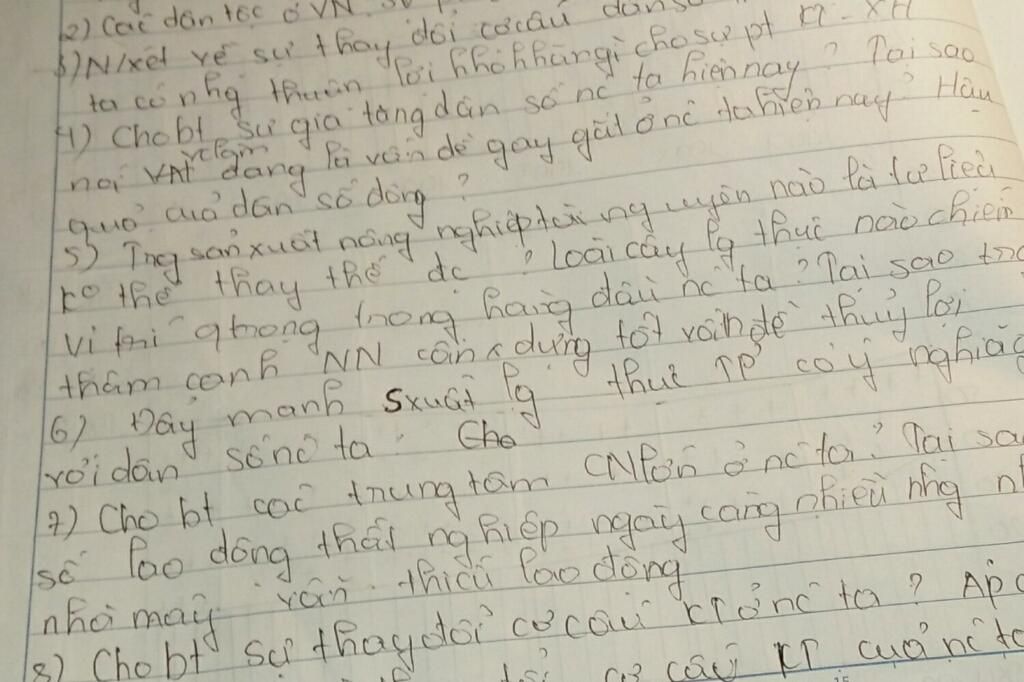 2) Các dân tộc ở VN
3) N/xét về sự thay đổi cơ cấu dân số
ta có nhg thuận lợi khó khăn gì cho sự pt - XH
4) Cho bt sự gia tăng dân số nc ta hiện nay ? Tại sao
nói việc làm đang là vấn đề gay gắt ở nc ta hiện nay ? Hậu
quả của dân số đông ?
5) Trg sản xuất nông nghiệp tài nguyên nào là tư liệu
ko thể thay thế đc ? Loài cây lg thực nào chiếm
vị trí qtrọng trong hàng đầu nc ta ? Tại sao
thâm canh NN cần x dựng tốt vấn đề thủy lợi
6) Đẩy mạnh sxuất lg thực TP có ý nghĩa
với dân số nc ta. Cho
7) Cho bt các trung tâm CN lớn ở nc ta ? Tại sa
số lao động thất nghiệp ngày càng nhiều nhg
nhà máy vẫn thiếu lao động
8) Cho bt sự thay đổi cơ cấu KT ở nc ta ?
cơ cấu KT của nc ta